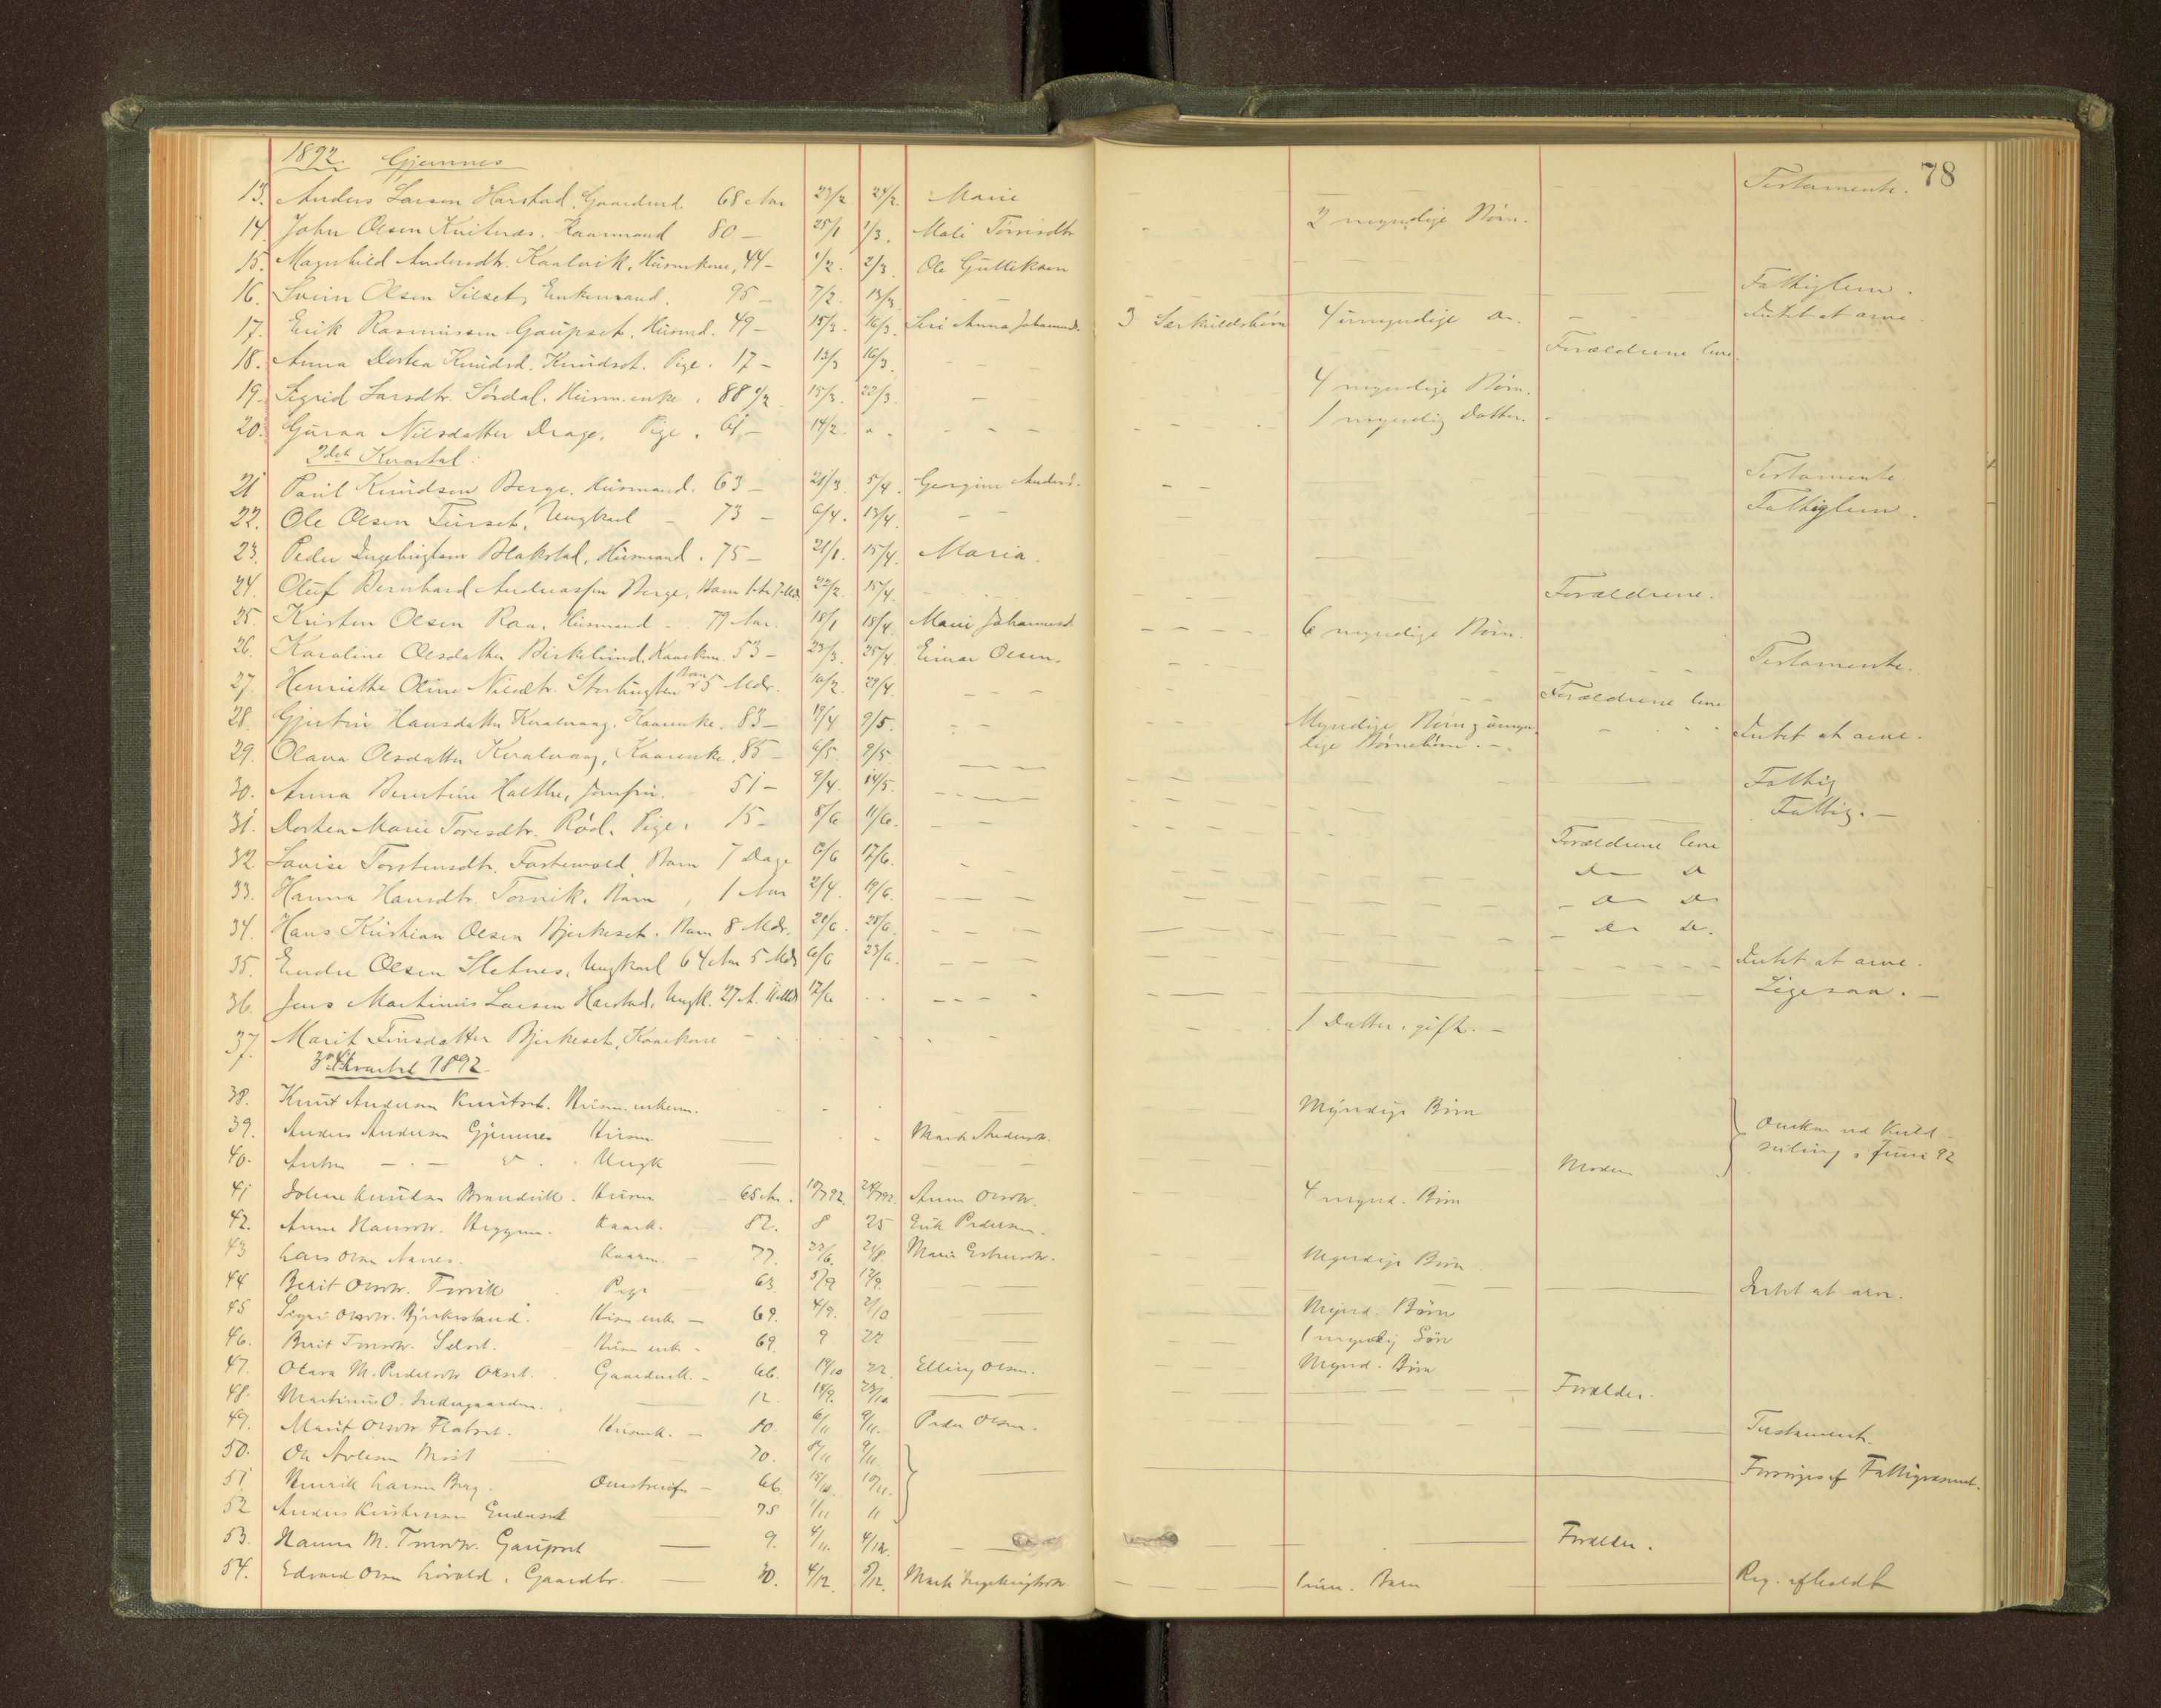 78
1892. Gjemnes
13. Anders Larsen Harstad, Gaardmd. 68 Aar 23/2 24/2. Marie — Testamente.
14. John Olsen Knitnæs. Kaarmand 80 – 28/1 1/3. Mali Tørrisdtr - 2 myndige Børn.
15. Magnhild Andersdtr. Kaalvik, Husmkone, 44 – 1/2. 2/3. Ole Gulliksen
16. Svein Olsen Silset, Enkemand. 95 – 7/2. 13/3 Fattiglem.
17. Erik Rasmussen Gaupset, Husmd. 49 – 15/2. 16/3. Siri Anna Johannesd. 3 Særkuldsbørn 4 umyndige do. - - - Intet at arve.
18. Anna Dortea Knudsd. Knudset. Pige. 17 – 13/3 16/3. Forældrene leve.
19. Sigrid Larsdtr. Sørdal. Husm.enke, 88 1/2 15/3. 22/3. — 4 myndige Børn.
20. Guraa Nilsdatter Drage. Pige. 61 – 14/2. " - - - - 1 myndig Datter.
2det Kvartal:
21 Paul Knudsen Berge. Husmand. 63 – 21/3. 5/4. Georgine Andersd. - - Testamente.
22. Ole Olsen Furset, Ungkarl – 73 – 6/4. 13/4. - - Fattiglem.
23. Peder Ingebrigtsen Blakstad, Husmand. 75 – 21/1. 15/4. Maria.
24. Oluf Bernhard Andreassen Berge, Barn 1 Ar 7 Md 22/2. 15/4. Forældrene.
25. Kristen Olsen Raa, Husmand. 79 Aar. 18/1 18/4. Marie Johannesd. - - - 6 myndige Børn.
26. Karoline Olsdatter Birkelund, Kaarkon. 53 – 23/3. 25/4. Einar Olsen. Testamente.
27. Henriette Oline Nilsdtr. Storlingsten Barn 5 Mdr. 10/2. 29/4. - - - Forældrene leve
28. Gjertin Hansdatter Kvalvaag, Kaarenke. 83 – 19/4 9/5. - - Myndige Børn & umyn- Intet at arve.
29. Olava Olsdatter Kvalvaag, Kaarenke. 85 – 6/5. 9/5. - - - dige Børnebørn. -.
30. Anna Berntine Halthe, Jomfru. 51 – 9/4. 14/5. - - - Fattig
31. Dorthea Marie Toresdtr. Rød. Pige. 15 – 8/6 11/6. - - Fattig. –
32. Lovise Torstensdtr. Fastevold, Barn 7 Dage 6/6 17/6. - Forældrene leve
33. Hanna Hansdtr. Torvik. Barn, 1 Aar 2/4. 19/6. - - - do do
34. Hans Kristian Olsen Bjerkeset. Barn 8 Mdr. 20/6. 28/6. - - - do do
35. Endre Olsen Sletnes, Ungkarl 64 Aar 5 Mdr 6/6 23/6. - - - do do. Intet at arve.
36. Jens Martinus Larsen Harstad, Ungk. 27 A. 11 Mdr 12/6 .. - - - Ligesaa. –
37. Marit Finsdatter Bjerkeset, Kaarkone – 1 Datter, gift. –
3die Kvartal 1892.
38. Knut Andersen Knutset. Husm. enkem. Myndige Børn
39. Anders Andersen Gjemnes Husm. — Marit Andersdtr. Omkom ved Kuld-
40. Anton – . – do . Ungk — Moderen seiling i Juni 92
41 Johan Knutsen Brandvik. Husm 65 Ar. 10/7 92. Anne Olsdtr. 4 mynd. Børn
42. Anne Hansdtr. Heggem. Kaark. – 82. 8 25 Erik Pedersen.
43 Lars Olsen Aanes. Kaarm. – 77. 22/6. 21/8. Marie Estensdtr. Myndige Børn
44 Berit Olsdtr. Torvik Pige 63. 5/9 12/9. — Intet at arve.
45 Sigri Olsdtr. Bjerkestrand. Husm enke – 69. 4/9. 2/10 Mynd. Børn
46. Berit Tomsdtr. Silset. Husm enk – 69. 9 22 1 myndig Søn
47. Olava M. Pedersdtr. Orset. Gaardmk. – 66. 19/10 22. Elling Olsen. Mynd. Børn
48. Martinus O. Indergaarden. — 12. 14/9. 23/10. Forældre.
49. Marit Olsdtr. Flatset. Husmk. – 80. 6/11 9/11. Peder Olsen. Testament.
50. Ole Arnesen Most — 70. 8/11 9/11
51 Henrik Larsen Berg. Omstreifer – 66. 15/10. 10/11. Forsørges af Fattigvæsenet.
52 Anders Kristensen Enderset — 75 1/11 11
53. Hanna M. Tomsdtr. Gaupset — 9. 4/11. 4/12. — Forældre.
54. Edvard Olsen Løvold. Gaardbr. — 30. 4/12. 5/12. Marit Ingebrigtsdtr. 1 um. Barn Reg. afholdt